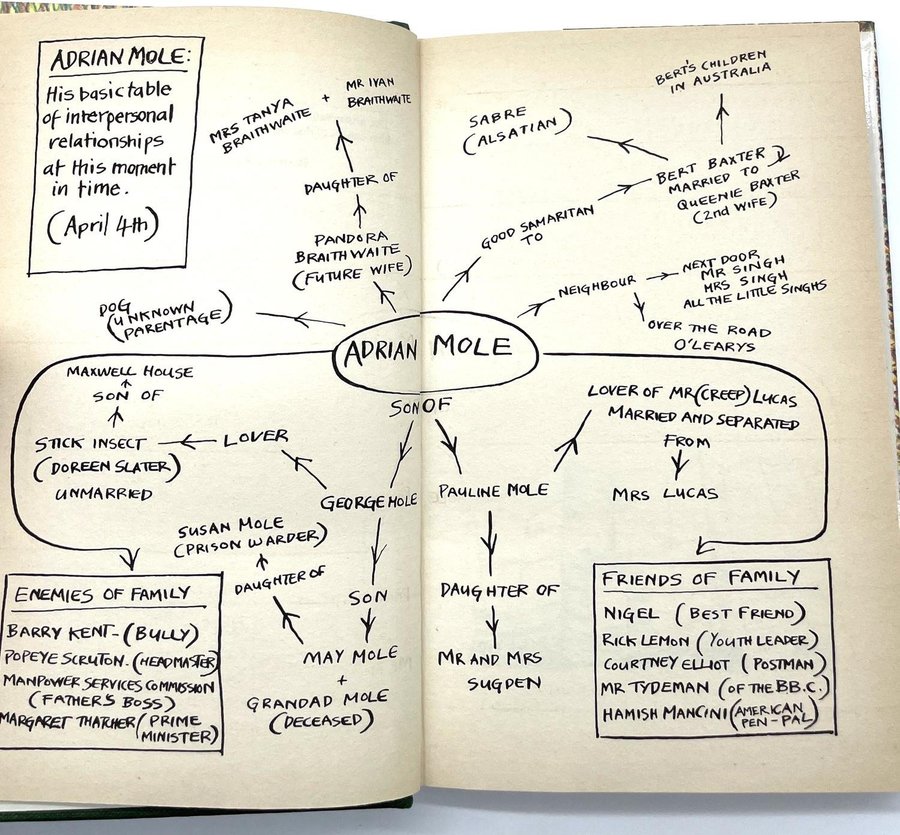 ADRIAN MOLE:
His basic table
of interpersonal
relationships
at this moment
in time.
(April 4th)
MRS TANYA
BRAITHWAITE
+
MR IVAN
BRAITHWAITE
DAUGHTER OF
PANDORA
BRAITHWAITE
(FUTURE WIFE)
DOG
(UNKNOWN
PARENTAGE)
SABRE
(ALSATIAN)
BERT'S CHILDREN
IN AUSTRALIA
BERT BAXTER
MARRIED TO
QUEENIE BAXTER
(2nd WIFE)
GOOD SAMARITAN
TO
NEIGHBOUR
NEXT DOOR
MR SINGH
MRS SINGH
ALL THE LITTLE SINGHS
OVER THE ROAD
O'LEARYS
ADRIAN MOLE
SON OF
MAXWELL HOUSE
SON OF
STICK INSECT
(DOREEN SLATER)
UNMARRIED
LOVER
GEORGE MOLE
SUSAN MOLE
(PRISON WARDER)
DAUGHTER OF
SON
MAY MOLE
+
GRANDAD MOLE
(DECEASED)
PAULINE MOLE
DAUGHTER OF
MR AND MRS
SUGDEN
LOVER OF MR (CREEP) LUCAS
MARRIED AND SEPARATED
FROM
MRS LUCAS
ENEMIES OF FAMILY
BARRY KENT - (BULLY)
POPEYE SCRUTON. (HEADMASTER)
MANPOWER SERVICES COMMISSION
(FATHER'S BOSS)
MARGARET THATCHER (PRIME
MINISTER)
FRIENDS OF FAMILY
NIGEL (BEST FRIEND)
RICK LEMON (YOUTH LEADER)
COURTNEY ELLIOT (POSTMAN)
MR TYDEMAN (OF THE B.B.C.)
HAMISH MANCINI (AMERICAN
PEN-PAL)